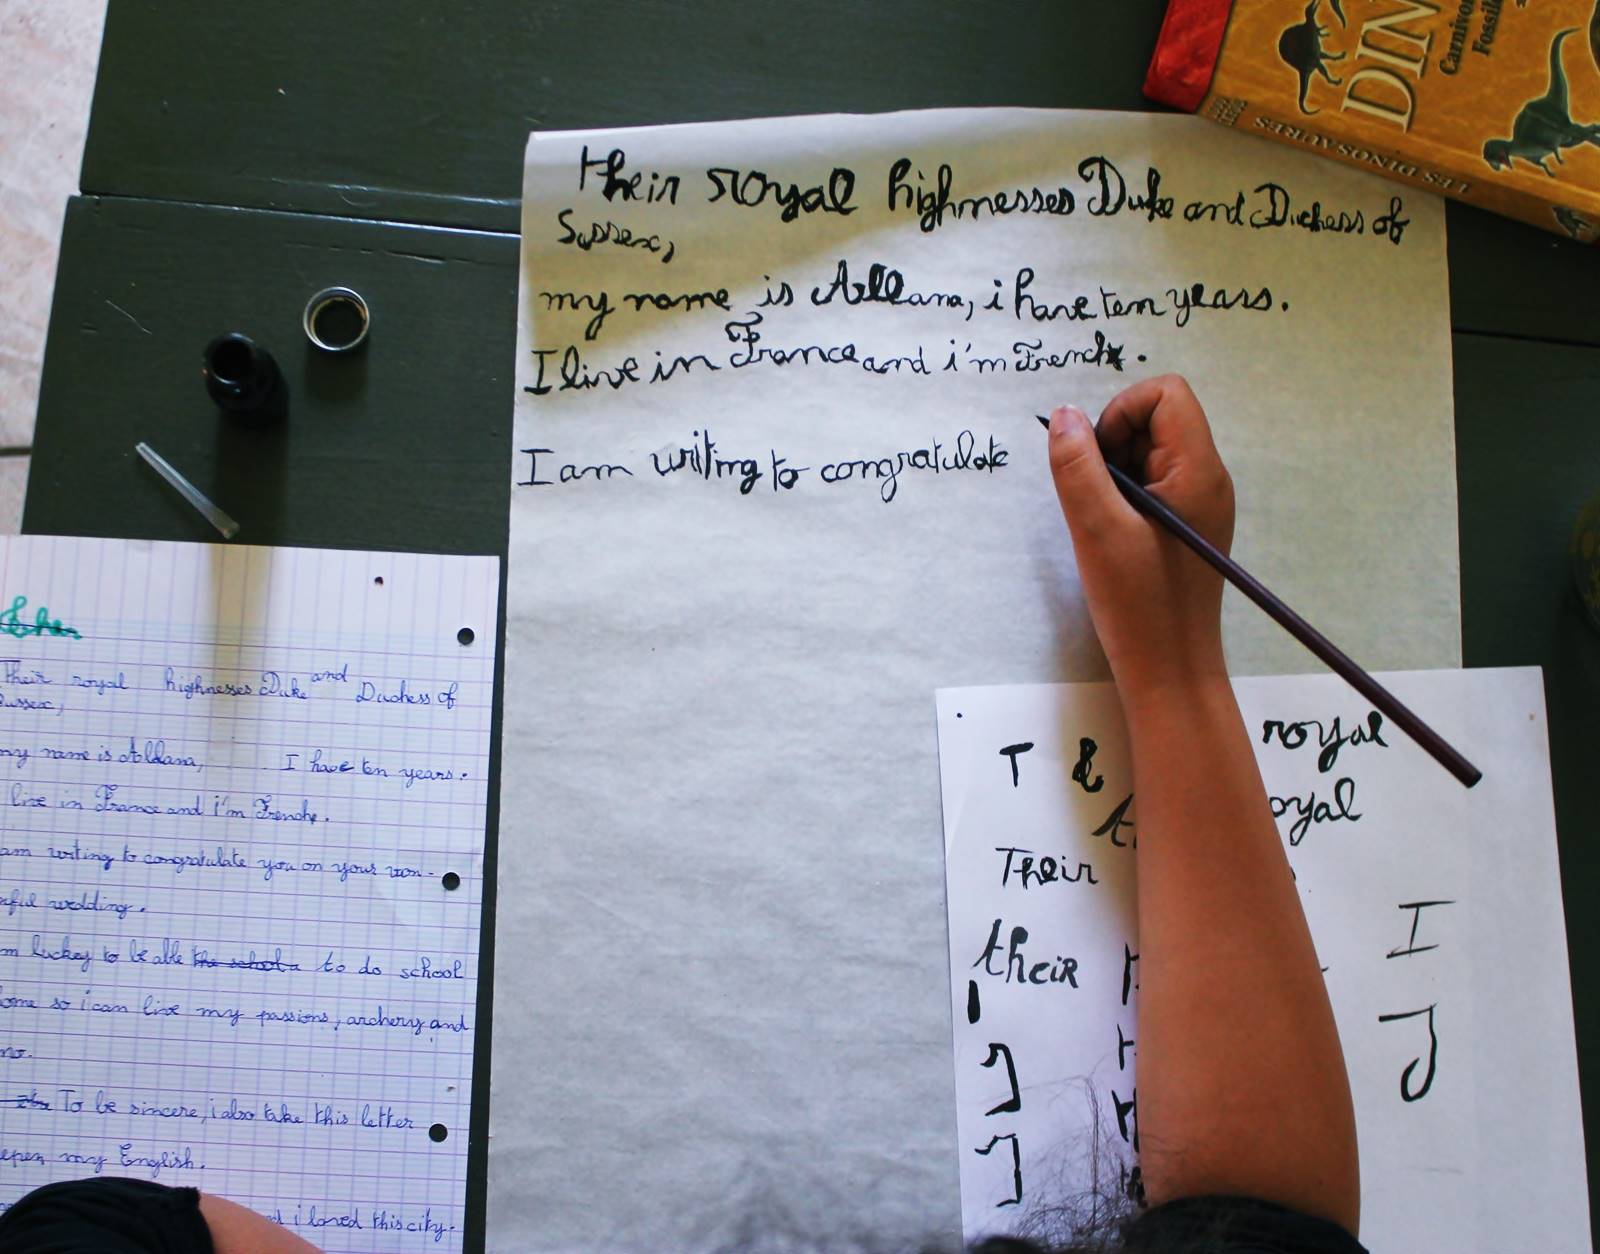 DIN
Carnivor
Fossil
LES DINOSAURES
Their royal highnesses Duke and Duchess of
Sussex,
my name is Alleana, i have ten years.
I live in France and i'm French.
I am writing to congratulate
Their royal highnesses Duke and Duchess of
Sussex,
my name is Alleana, I have ten years.
live in France and i'm French.
am writing to congratulate you on your won-
rful wedding.
m luckey to be able the school a to do school
ome so i can live my passions, archery and
no.
To be sincere, i also take this letter
epen my English.
d i loved this city.
T & royal
t oyal
Their
their
I
J